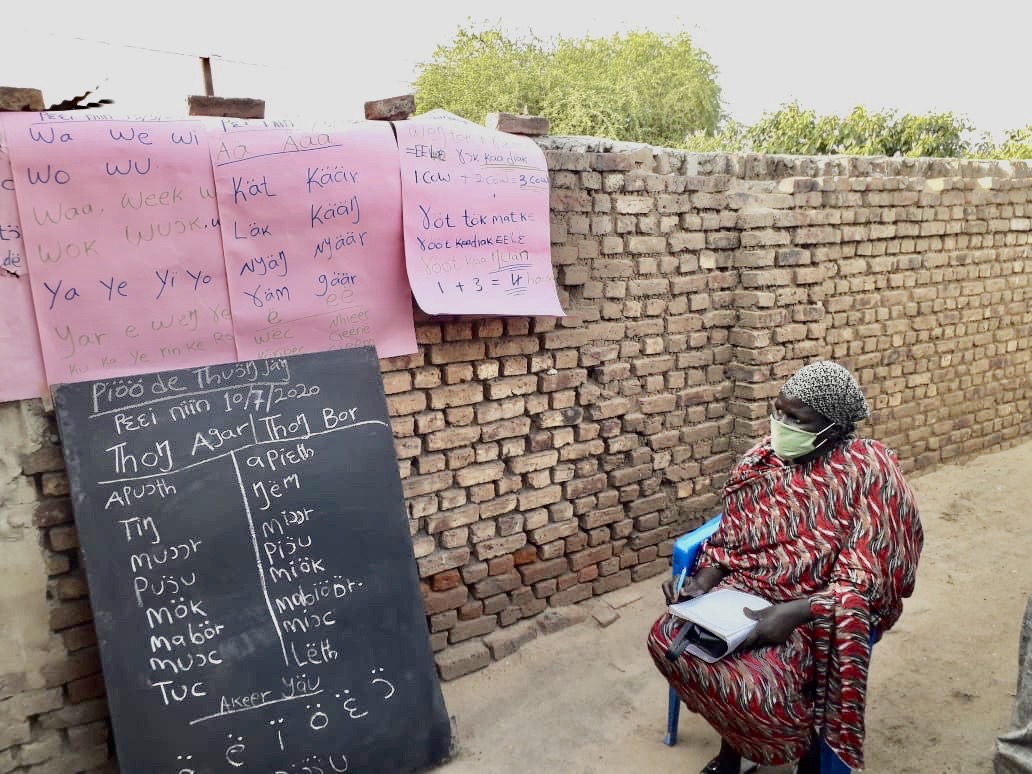 Wa We Wi
Wo Wu
Waa, Week
Wok Wuɔk,
Ya Ye Yi Yo
Yar e weŋ
Ku ka Ye rin ke
Aa Aaa
Kät Käär
Läk Kääŋ
Nyäŋ Nyäär
Ɣäm gäär
e ee
wec
=EELE Ɣɔk kaadiak
1 cow + 2 cow = 3 cow
Ɣöt tök mat ke
Ɣööt kaadiak EELE
Ɣööt kaa ŋuan
1 + 3 = 4
Piööc de Thuɔŋjäŋ
Pɛɛi niin 10/7/2020
Thoŋ Agar Thoŋ Bor
Apuɔth apieth
Tiŋ ŋëm
muɔɔr miɔɔr
puɔ̈u piɔ̈u
mök miök
mabör mabiöör.
muɔc miɔc
Tuc Lëth
Akeer yäu
ë ï ö ɛ̈ ɔ̈